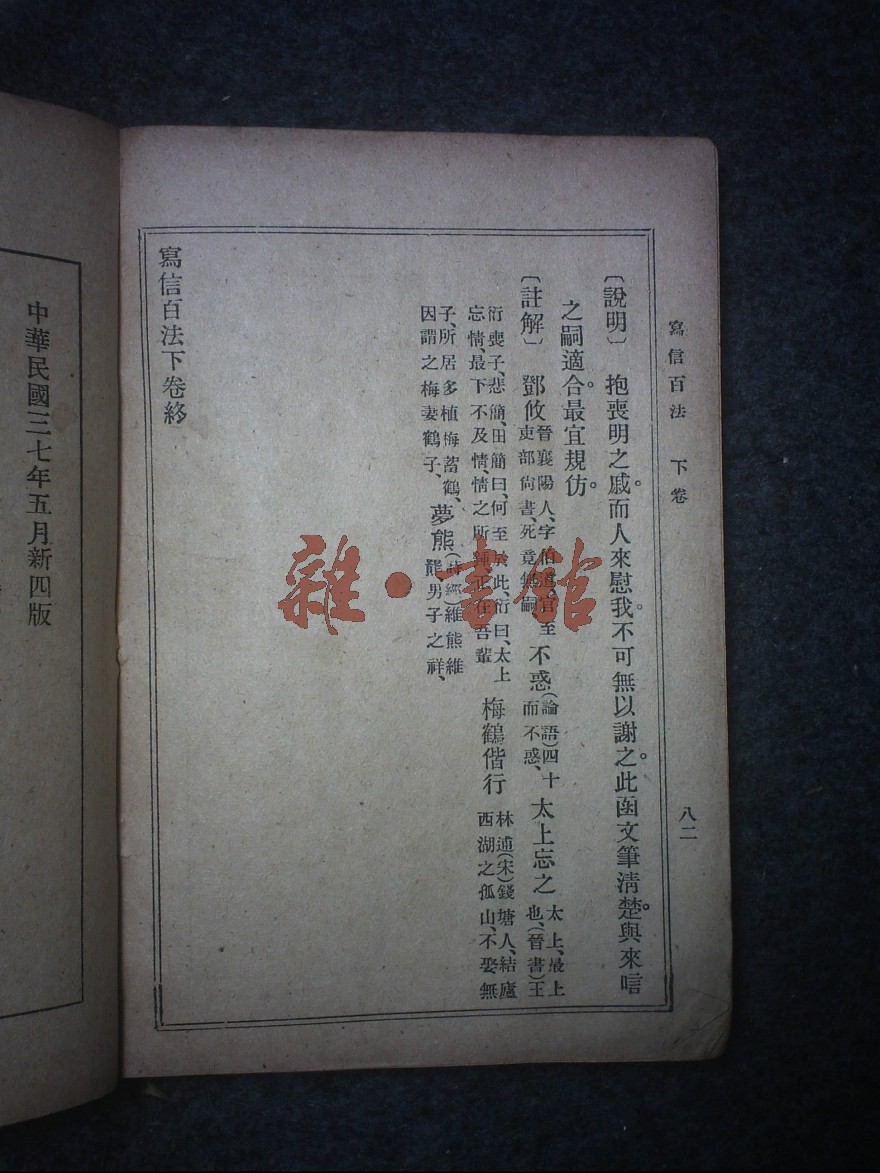 寫信百法 下卷 八二
〔說明〕 抱喪明之戚。而人來慰我。不可無以謝之。此函文筆清楚。與來唁
之嗣適合。最宜規仿。
〔註解〕 鄧攸 晉襄陽人、字伯道、官至吏部尙書、死竟無嗣 不惑 (論語)四十而不惑、 太上忘之 太上、最上也、(晉書)王
衍喪子、悲簡、田簡曰、何至於此、衍曰、太上忘情、最下不及情、情之所鍾、正在吾輩 梅鶴偕行 林逋(宋)錢塘人、結廬西湖之孤山、不娶無
子、所居多植梅蓄鶴、因謂之梅妻鶴子、 夢熊 (詩經)維熊維羆男子之祥、
寫信百法下卷終
中華民國三七年五月新四版
雜·書館